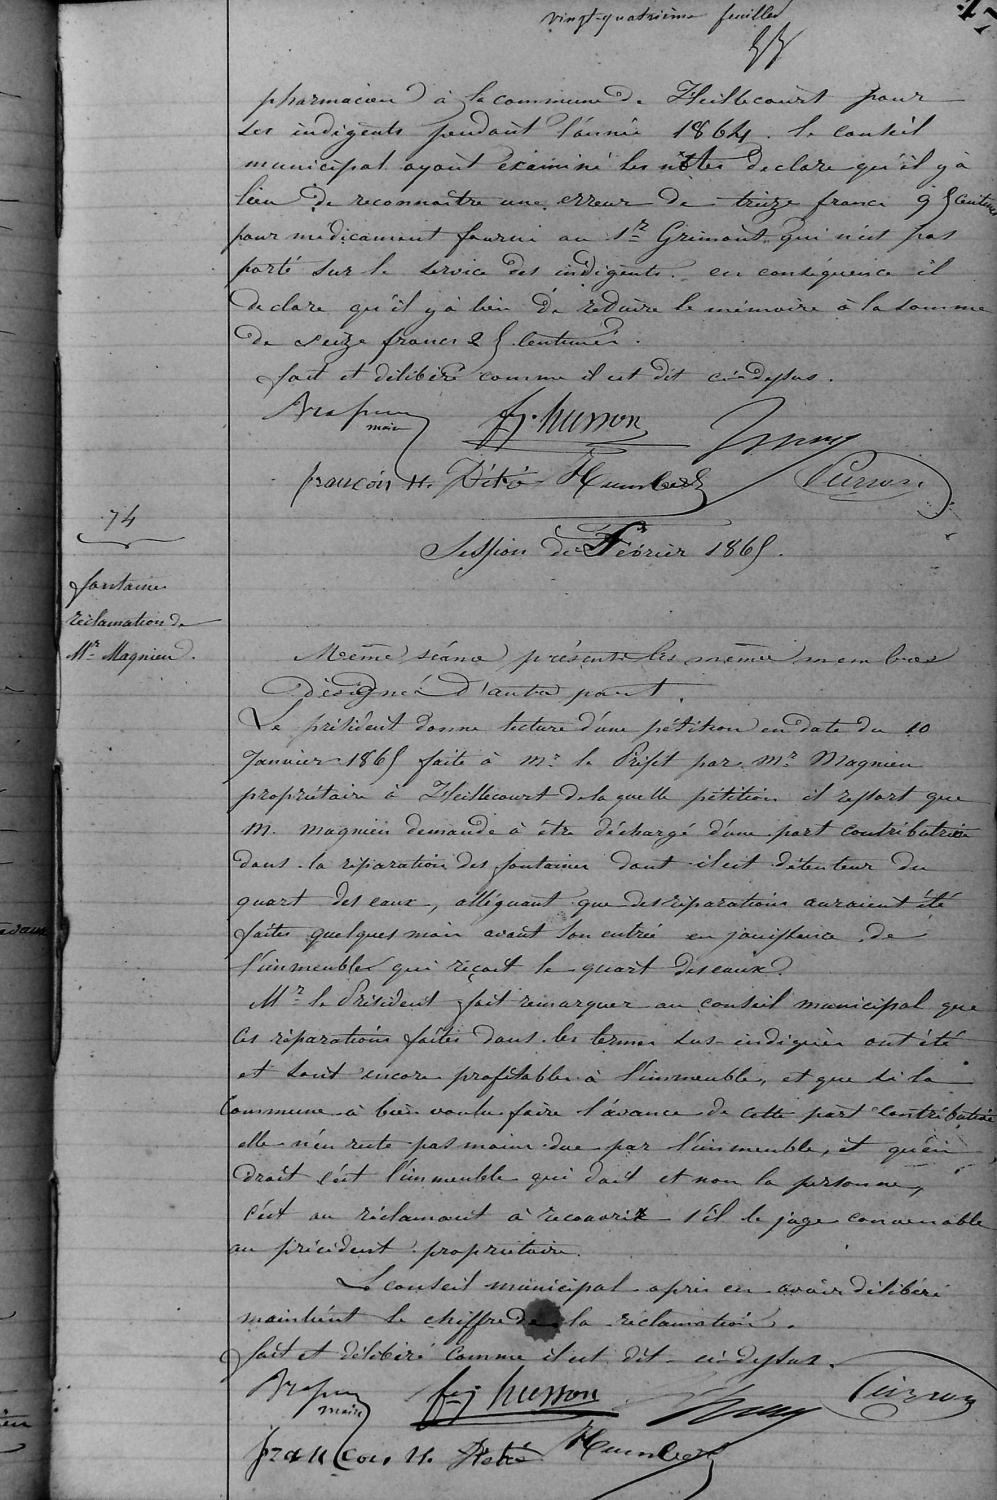 vingt-quatrième feuillet
pharmacien à la commune de Heillecourt pour
les indigents pendant l'année 1864. le conseil
municipal ayant éxaminé les notes declare qu'il y à
lieu de reconnaître une erreur de treize francs 95 centimes
pour medicament fourni au Sr Grimont qui n'est pas
porté sur le service des indigents. en conséquence il
declare qu'il y à lieu de reduire le mémoire à la somme
de seize francs 25 centimes.
fait et délibéré comme il est dit ci-dessus.
maire
fj. husson
françois H. Pétré Humbert
74
Session de Février 1865.
fontaines
réclamation de
Mr Magnien.
Même séance présents les mêmes membres
désignés d'autre part.
Le président donne lecture d'une pétition en date du 10
Janvier 1865 faite à Mr le Préfet par Mr Magnien
propriétaire à Heillecourt de laquelle pétition il ressort que
M. magnien demande à être déchargé d'une part contributive
dans la réparation des fontaines dont il est détenteur du
quart des eaux, alléguant que des réparations auraient été
faites quelques mois avant son entrée en jouissance de
l'immeuble qui reçoit le quart des eaux.
Mr le Président fait remarquer au conseil municipal que
les réparations faites dans les termes sus-indiqués ont été
et sont encore profitables à l'immeuble, et que si la
Commune à bien voulu faire l'avance de cette part contributive
elle n'en reste pas moins due par l'immeuble, et qu'en
droit c'est l'immeuble qui doit et non la personne,
c'est au réclamant à recouvrir s'il le juge convenable
au précédent propriétaire.
Le conseil municipal après en avoir délibéré
maintient le chiffre de la réclamation.
fait et délibéré comme il est dit ci-dessus.
maire
fj husson
françois H. Pétré Humbert